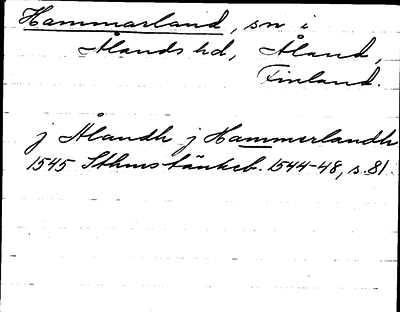 Hammarland, sn i
Ålands hd, Åland,
Finland.
j Ålandh j Hammerlandh
1545 Sthms tänkeb. 1544-48, s. 81.